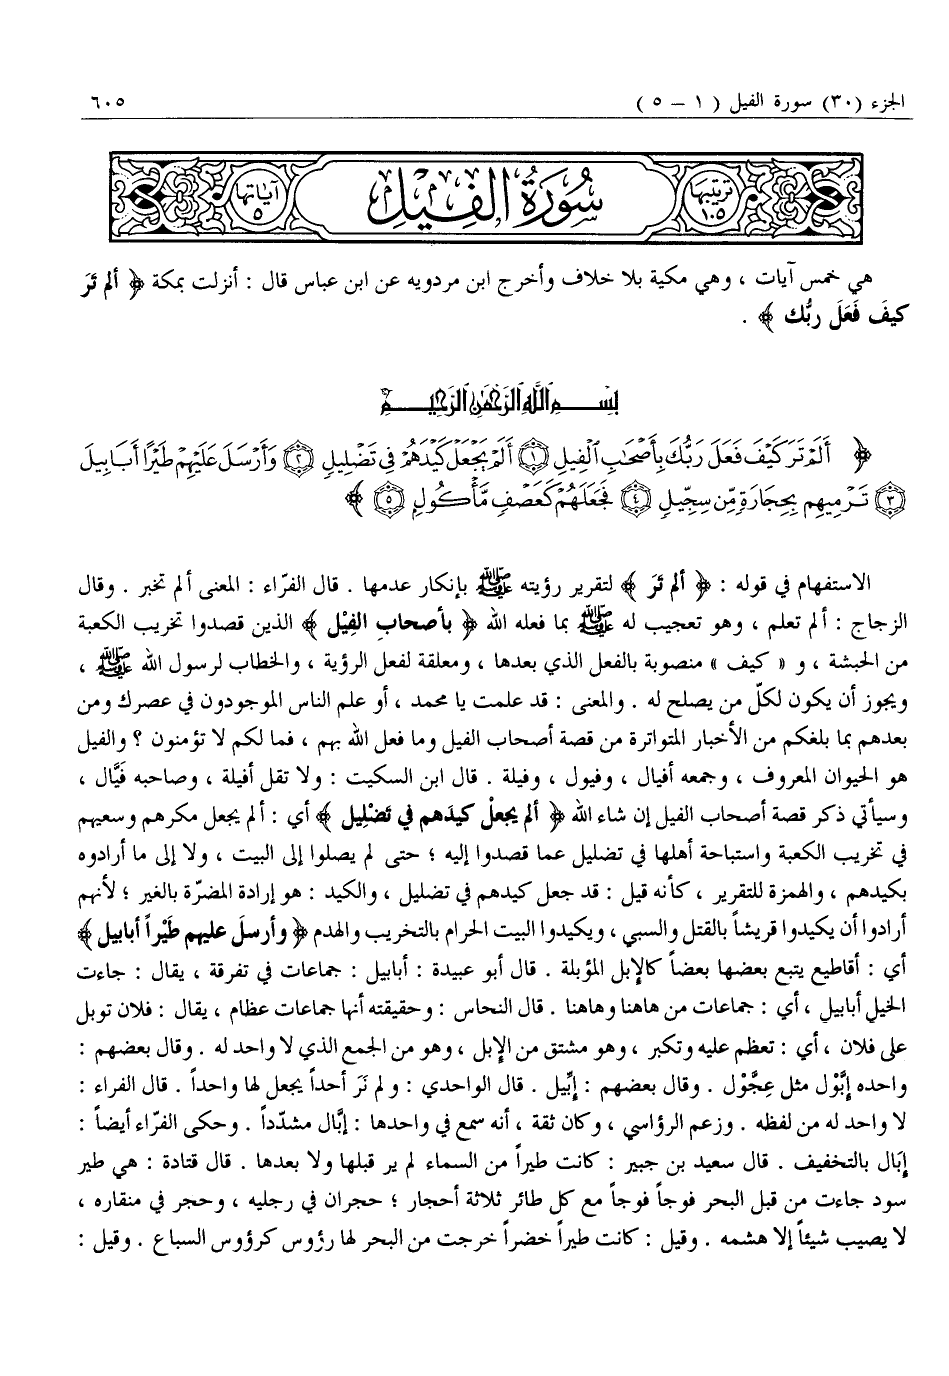 الجزء (٣٠) سورة الفيل ( ١ – ٥ ) ٦٠٥
ترتيبها ١٠٥ سُورَةُ الفِيلِ آياتها ٥
هي خمس آيات ، وهي مكية بلا خلاف وأخرج ابن مردويه عن ابن عباس قال : أنزلت بمكة ﴿ ألم تَرَ
كيفَ فَعَلَ ربُّك ﴾ .
بسم الله الرحمن الرحيم
﴿ أَلَمْ تَرَ كَيْفَ فَعَلَ رَبُّكَ بِأَصْحَٰبِ ٱلْفِيلِ ۝١ أَلَمْ يَجْعَلْ كَيْدَهُمْ فِي تَضْلِيلٍ ۝٢ وَأَرْسَلَ عَلَيْهِمْ طَيْرًا أَبَابِيلَ
۝٣ تَرْمِيهِم بِحِجَارَةٍ مِّن سِجِّيلٍ ۝٤ فَجَعَلَهُمْ كَعَصْفٍ مَّأْكُولٍ ۝٥ ﴾
الاستفهام في قوله : ﴿ ألم تَرَ ﴾ لتقرير رؤيته ﷺ بإنكار عدمها . قال الفرّاء : المعنى ألم تخبر . وقال
الزجاج : ألم تعلم ، وهو تعجيب له ﷺ بما فعله الله ﴿ بأصحاب الفِيْل ﴾ الذين قصدوا تخريب الكعبة
من الحبشة ، و « كيف » منصوبة بالفعل الذي بعدها ، ومعلقة لفعل الرؤية ، والخطاب لرسول الله ﷺ ،
ويجوز أن يكون لكلّ من يصلح له . والمعنى : قد علمت يا محمد ، أو علم الناس الموجودون في عصرك ومن
بعدهم بما بلغكم من الأخبار المتواترة من قصة أصحاب الفيل وما فعل الله بهم ، فما لكم لا تؤمنون ؟ والفيل
هو الحيوان المعروف ، وجمعه أفيال ، وفيول ، وفيلة . قال ابن السكيت : ولا تقل أفيلة ، وصاحبه فَيَّال ،
وسيأتي ذكر قصة أصحاب الفيل إن شاء الله ﴿ ألم يجعلْ كيدَهم في تَضْلِيل ﴾ أي : ألم يجعل مكرهم وسعيهم
في تخريب الكعبة واستباحة أهلها في تضليل عما قصدوا إليه ؛ حتى لم يصلوا إلى البيت ، ولا إلى ما أرادوه
بكيدهم ، والهمزة للتقرير ، كأنه قيل : قد جعل كيدهم في تضليل ، والكيد : هو إرادة المضرّة بالغير ؛ لأنهم
أرادوا أن يكيدوا قريشاً بالقتل والسبي ، ويكيدوا البيت الحرام بالتخريب والهدم ﴿ وأرسلَ عليهم طَيْراً أبابيل ﴾
أي : أقاطيع يتبع بعضها بعضاً كالإبل المؤبلة . قال أبو عبيدة : أبابيل : جماعات في تفرقة ، يقال : جاءت
الخيل أبابيل ، أي : جماعات من هاهنا وهاهنا . قال النحاس : وحقيقته أنها جماعات عظام ، يقال : فلان توبل
على فلان ، أي : تعظم عليه وتكبر ، وهو مشتق من الإبل ، وهو من الجمع الذي لا واحد له . وقال بعضهم :
واحده إبَّوْل مثل عِجَّوْل . وقال بعضهم : إبِّيل . قال الواحدي : ولم نَرَ أحداً يجعل لها واحداً . قال الفراء :
لا واحد له من لفظه . وزعم الرؤاسي ، وكان ثقة ، أنه سمع في واحدها : إبَّال مشدّداً . وحكى الفرّاء أيضاً :
إبَال بالتخفيف . قال سعيد بن جبير : كانت طيراً من السماء لم ير قبلها ولا بعدها . قال قتادة : هي طير
سود جاءت من قبل البحر فوجاً فوجاً مع كل طائر ثلاثة أحجار ؛ حجران في رجليه ، وحجر في منقاره ،
لا يصيب شيئاً إلا هشمه . وقيل : كانت طيراً خضراً خرجت من البحر لها رؤوس كرؤوس السباع . وقيل :